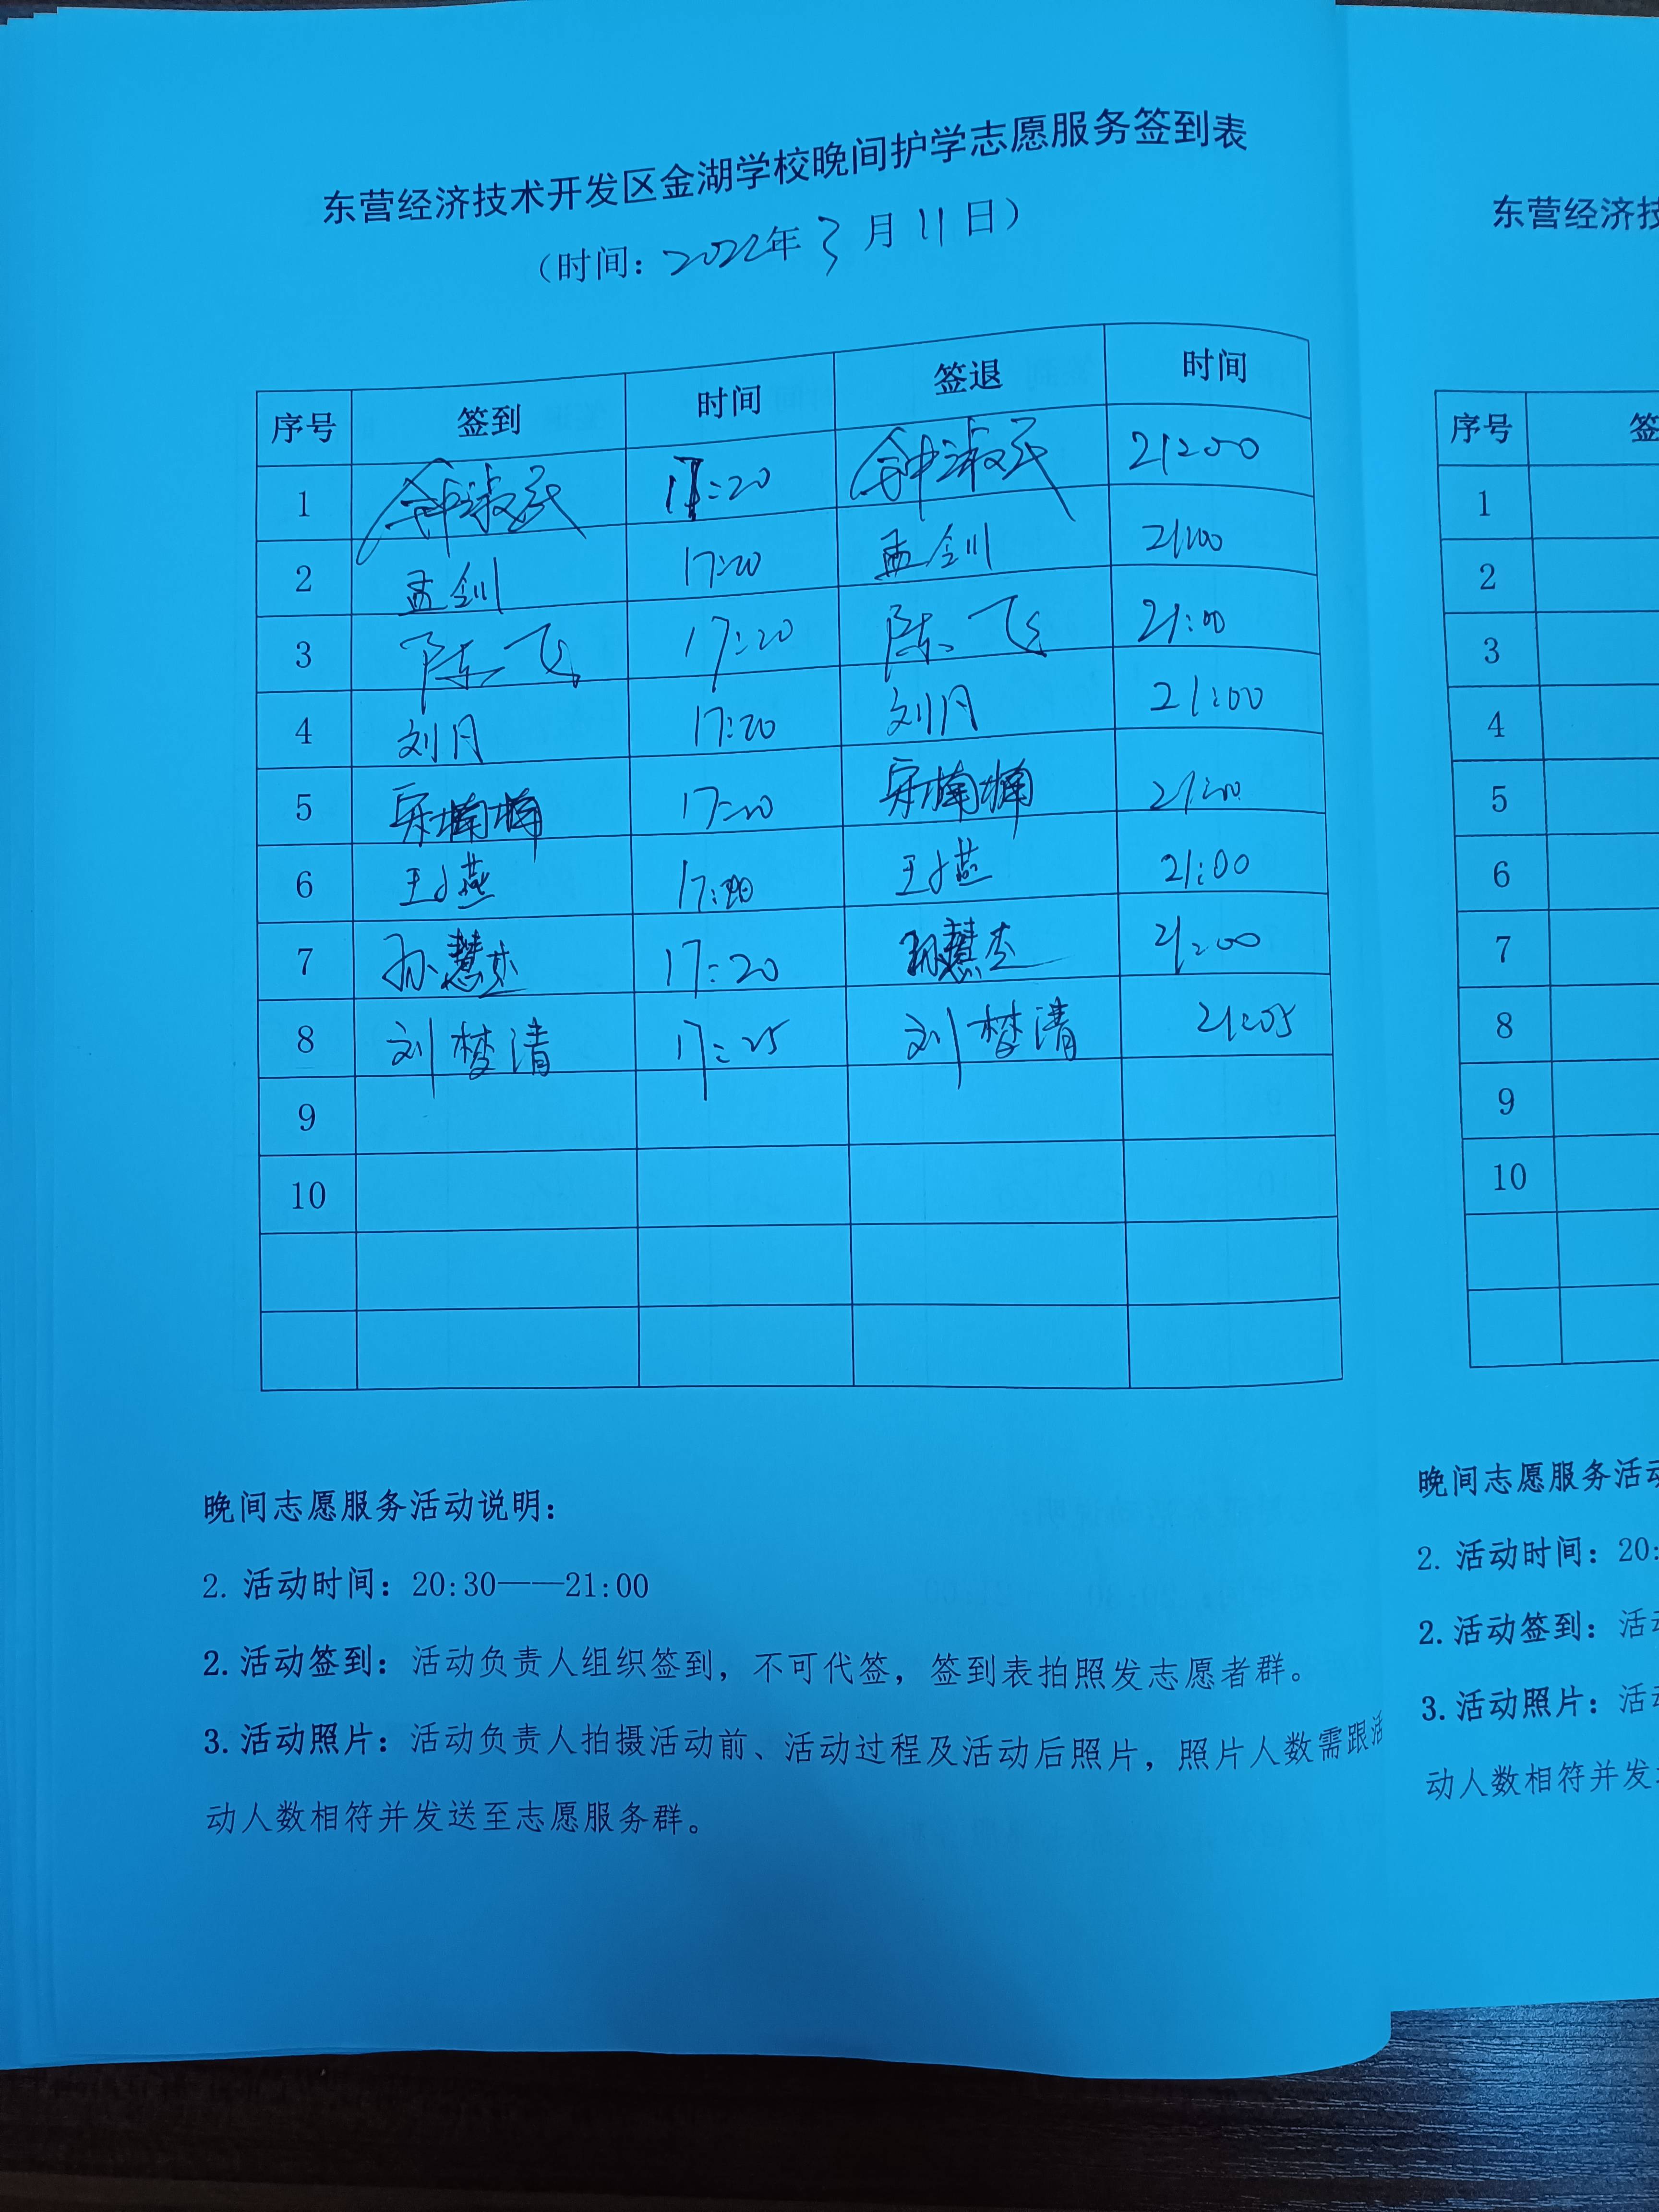 东营经济技术开发区金湖学校晚间护学志愿服务签到表
（时间：2022年3月11日）
序号 签到 时间 签退 时间
1 钟淑民 17:20 钟淑民 21:00
2 孟钊 17:20 孟钊 21:00
3 陈飞 17:20 陈飞 21:00
4 刘月 17:20 刘月 21:00
5 宋楠楠 17:20 宋楠楠 21:00
6 王小燕 17:20 王小燕 21:00
7 孙慧杰 17:20 孙慧杰 21:00
8 刘梦清 17:25 刘梦清 21:05
9
10
晚间志愿服务活动说明：
2. 活动时间：20:30——21:00
2.活动签到：活动负责人组织签到，不可代签，签到表拍照发志愿者群。
3.活动照片：活动负责人拍摄活动前、活动过程及活动后照片，照片人数需跟活
动人数相符并发送至志愿服务群。
东营经济技
序号 签
1
2
3
4
5
6
7
8
9
10
晚间志愿服务活动
2. 活动时间：20:
2.活动签到：活动
3.活动照片：活动
动人数相符并发